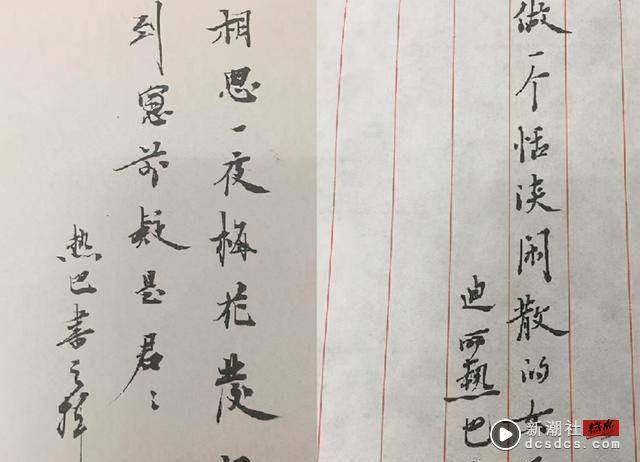 相思一夜梅花發
到窓前疑是君
热巴書之
做一个恬淡闲散的女
迪丽熱巴
新潮社
dcsdcs.com